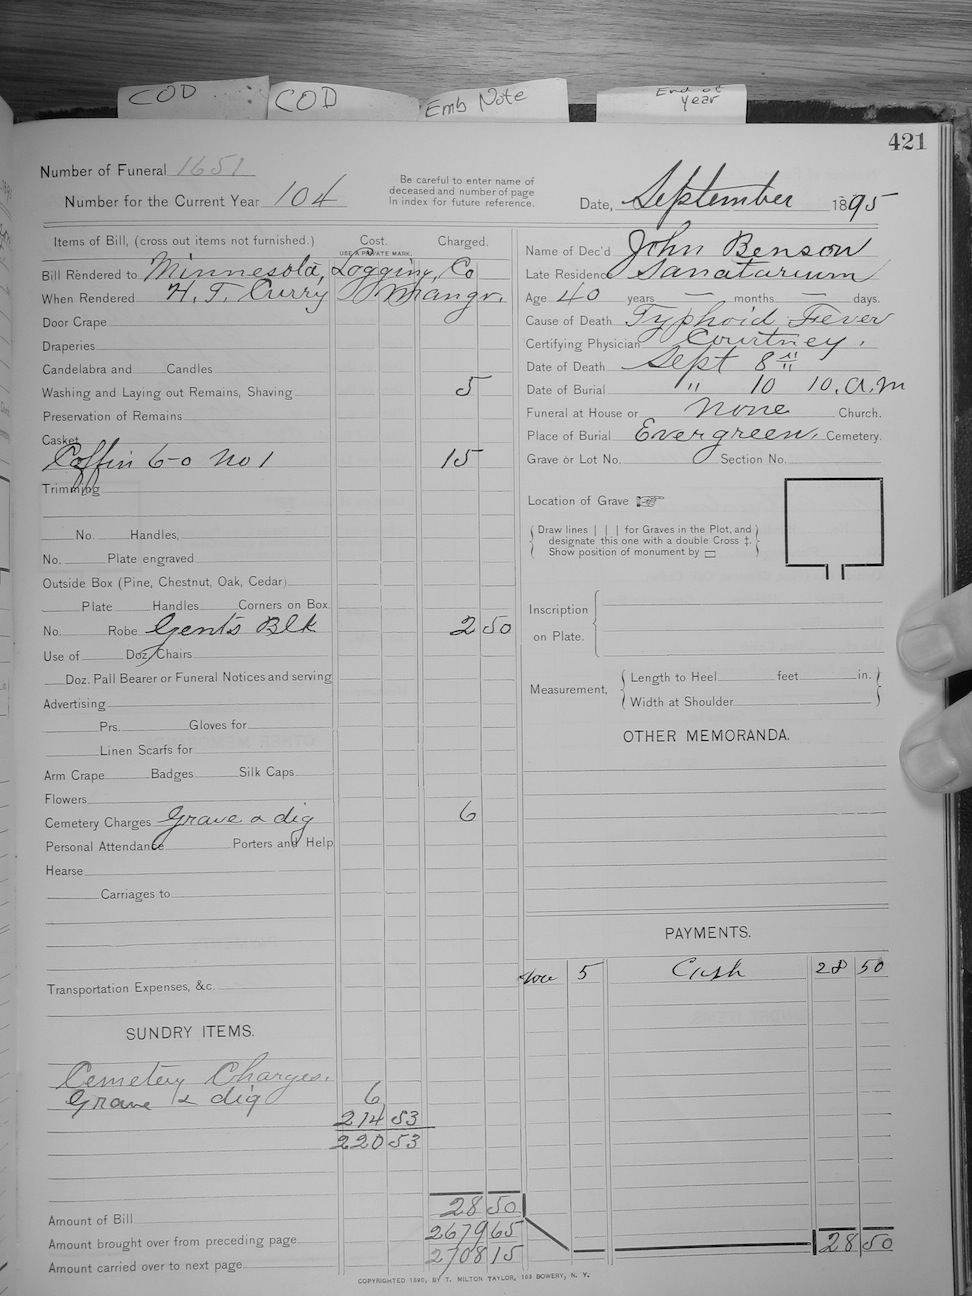 COD
COD
Emb Note
End of Year
421
Number of Funeral 1651
Number for the Current Year 104
Be careful to enter name of
deceased and number of page
in index for future reference.
Date, September 1895
Items of Bill, (cross out items not furnished.) Cost. Charged.
USE A PRIVATE MARK.
Bill Rendered to Minnesota, Logging, Co
When Rendered H. T. Curry Mangr.
Door Crape
Draperies
Candelabra and Candles
Washing and Laying out Remains, Shaving 5
Preservation of Remains
Casket
Coffin 6-0 No 1 15
Trimming
No. Handles,
No. Plate engraved
Outside Box (Pine, Chestnut, Oak, Cedar)
Plate Handles Corners on Box
No. Robe Gents Blk 2 50
Use of Doz. Chairs
Doz. Pall Bearer or Funeral Notices and serving
Advertising
Prs. Gloves for
Linen Scarfs for
Arm Crape Badges Silk Caps
Flowers
Cemetery Charges Grave & dig 6
Personal Attendance Porters and Help
Hearse
Carriages to
Transportation Expenses, &c.
SUNDRY ITEMS.
Cemetery Charges.
Grave & dig 6
214 53
220 53
Amount of Bill 28 50
Amount brought over from preceding page 2679 65
Amount carried over to next page 2708 15
Name of Dec'd John Benson
Late Residence Sanatarium
Age 40 years — months — days.
Cause of Death Typhoid Fever
Certifying Physician Courtney.
Date of Death Sept 8
Date of Burial " 10 10, a.m
Funeral at House or None Church.
Place of Burial Evergreen, Cemetery.
Grave or Lot No. Section No.
Location of Grave
Draw lines | | | for Graves in the Plot, and
designate this one with a double Cross ‡.
Show position of monument by ▭
Inscription
on Plate.
Measurement, Length to Heel feet in.
Width at Shoulder
OTHER MEMORANDA.
PAYMENTS.
5 Cash 28 50
28 50
COPYRIGHTED 1890, BY T. MILTON TAYLOR, 163 BOWERY, N. Y.